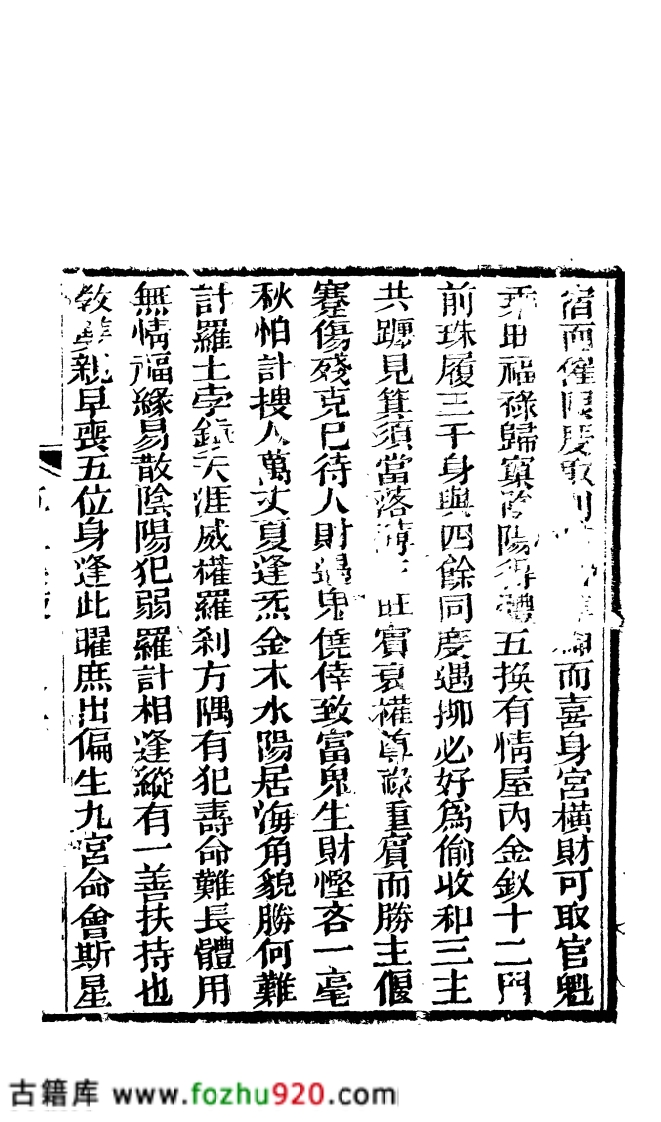 宿而催限度取而喜身宮橫財可取官魁
乘田福祿歸窠陰陽得禮五換有情屋內金釵十二門
前珠履三千身與四餘同度遇抑必好爲偷收和三主
共躔見箕須當落旺賓衰權尊祿重賓而勝主偃
蹇傷殘克已待人財遇鬼僥倖致富鬼生財慳吝一毫
秋怕計搜人萬丈夏逢炁金木水陽居海角貌勝何難
計羅土孛鎮天涯威權羅剎方隅有犯壽命難長體用
無情福緣易散陰陽犯弱羅計相逢縱有一善扶持也
教雙親早喪五位身逢此曜庶出偏生九宮命會斯星
古籍库 www.fozhu920.com